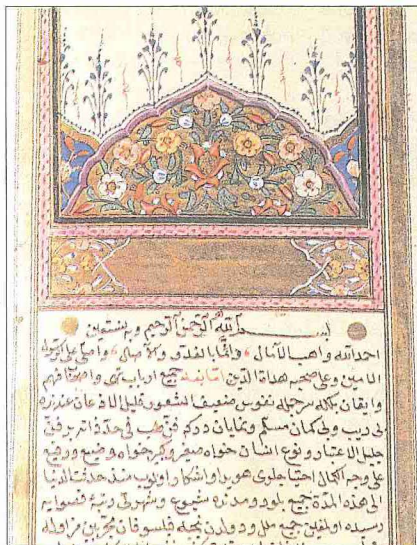 بسم الله الرحمن الرحيم وبه نستعين
احمد الله واهب الآمال والصلى على
الامين وعلى صحبه هداة الدين اما بعد جميع ارباب نهى واصحاب فهم
وايقان بلكه سرجمله نفوس ضعيف الشعور قليل الاذعان عندنده
بى ريب وبى كمان مسلم ونمايان دركه فن طب فى حد ذاته برفن
جليل الاعتبار ونوع انسان خواه صغير وكبير خواه وضيع ورفيع
على وجه الكمال احتياجلرى هويدا واشكار اولوب منذ حدثت الدنيا
الى هذه المدة جميع بلور ومدنده شيوع وشهرتى رتبهٔ قصوايه
رسيده اولمغين جميع ملل ودولدن نيجه فيلسوفان مجربين مزاوله